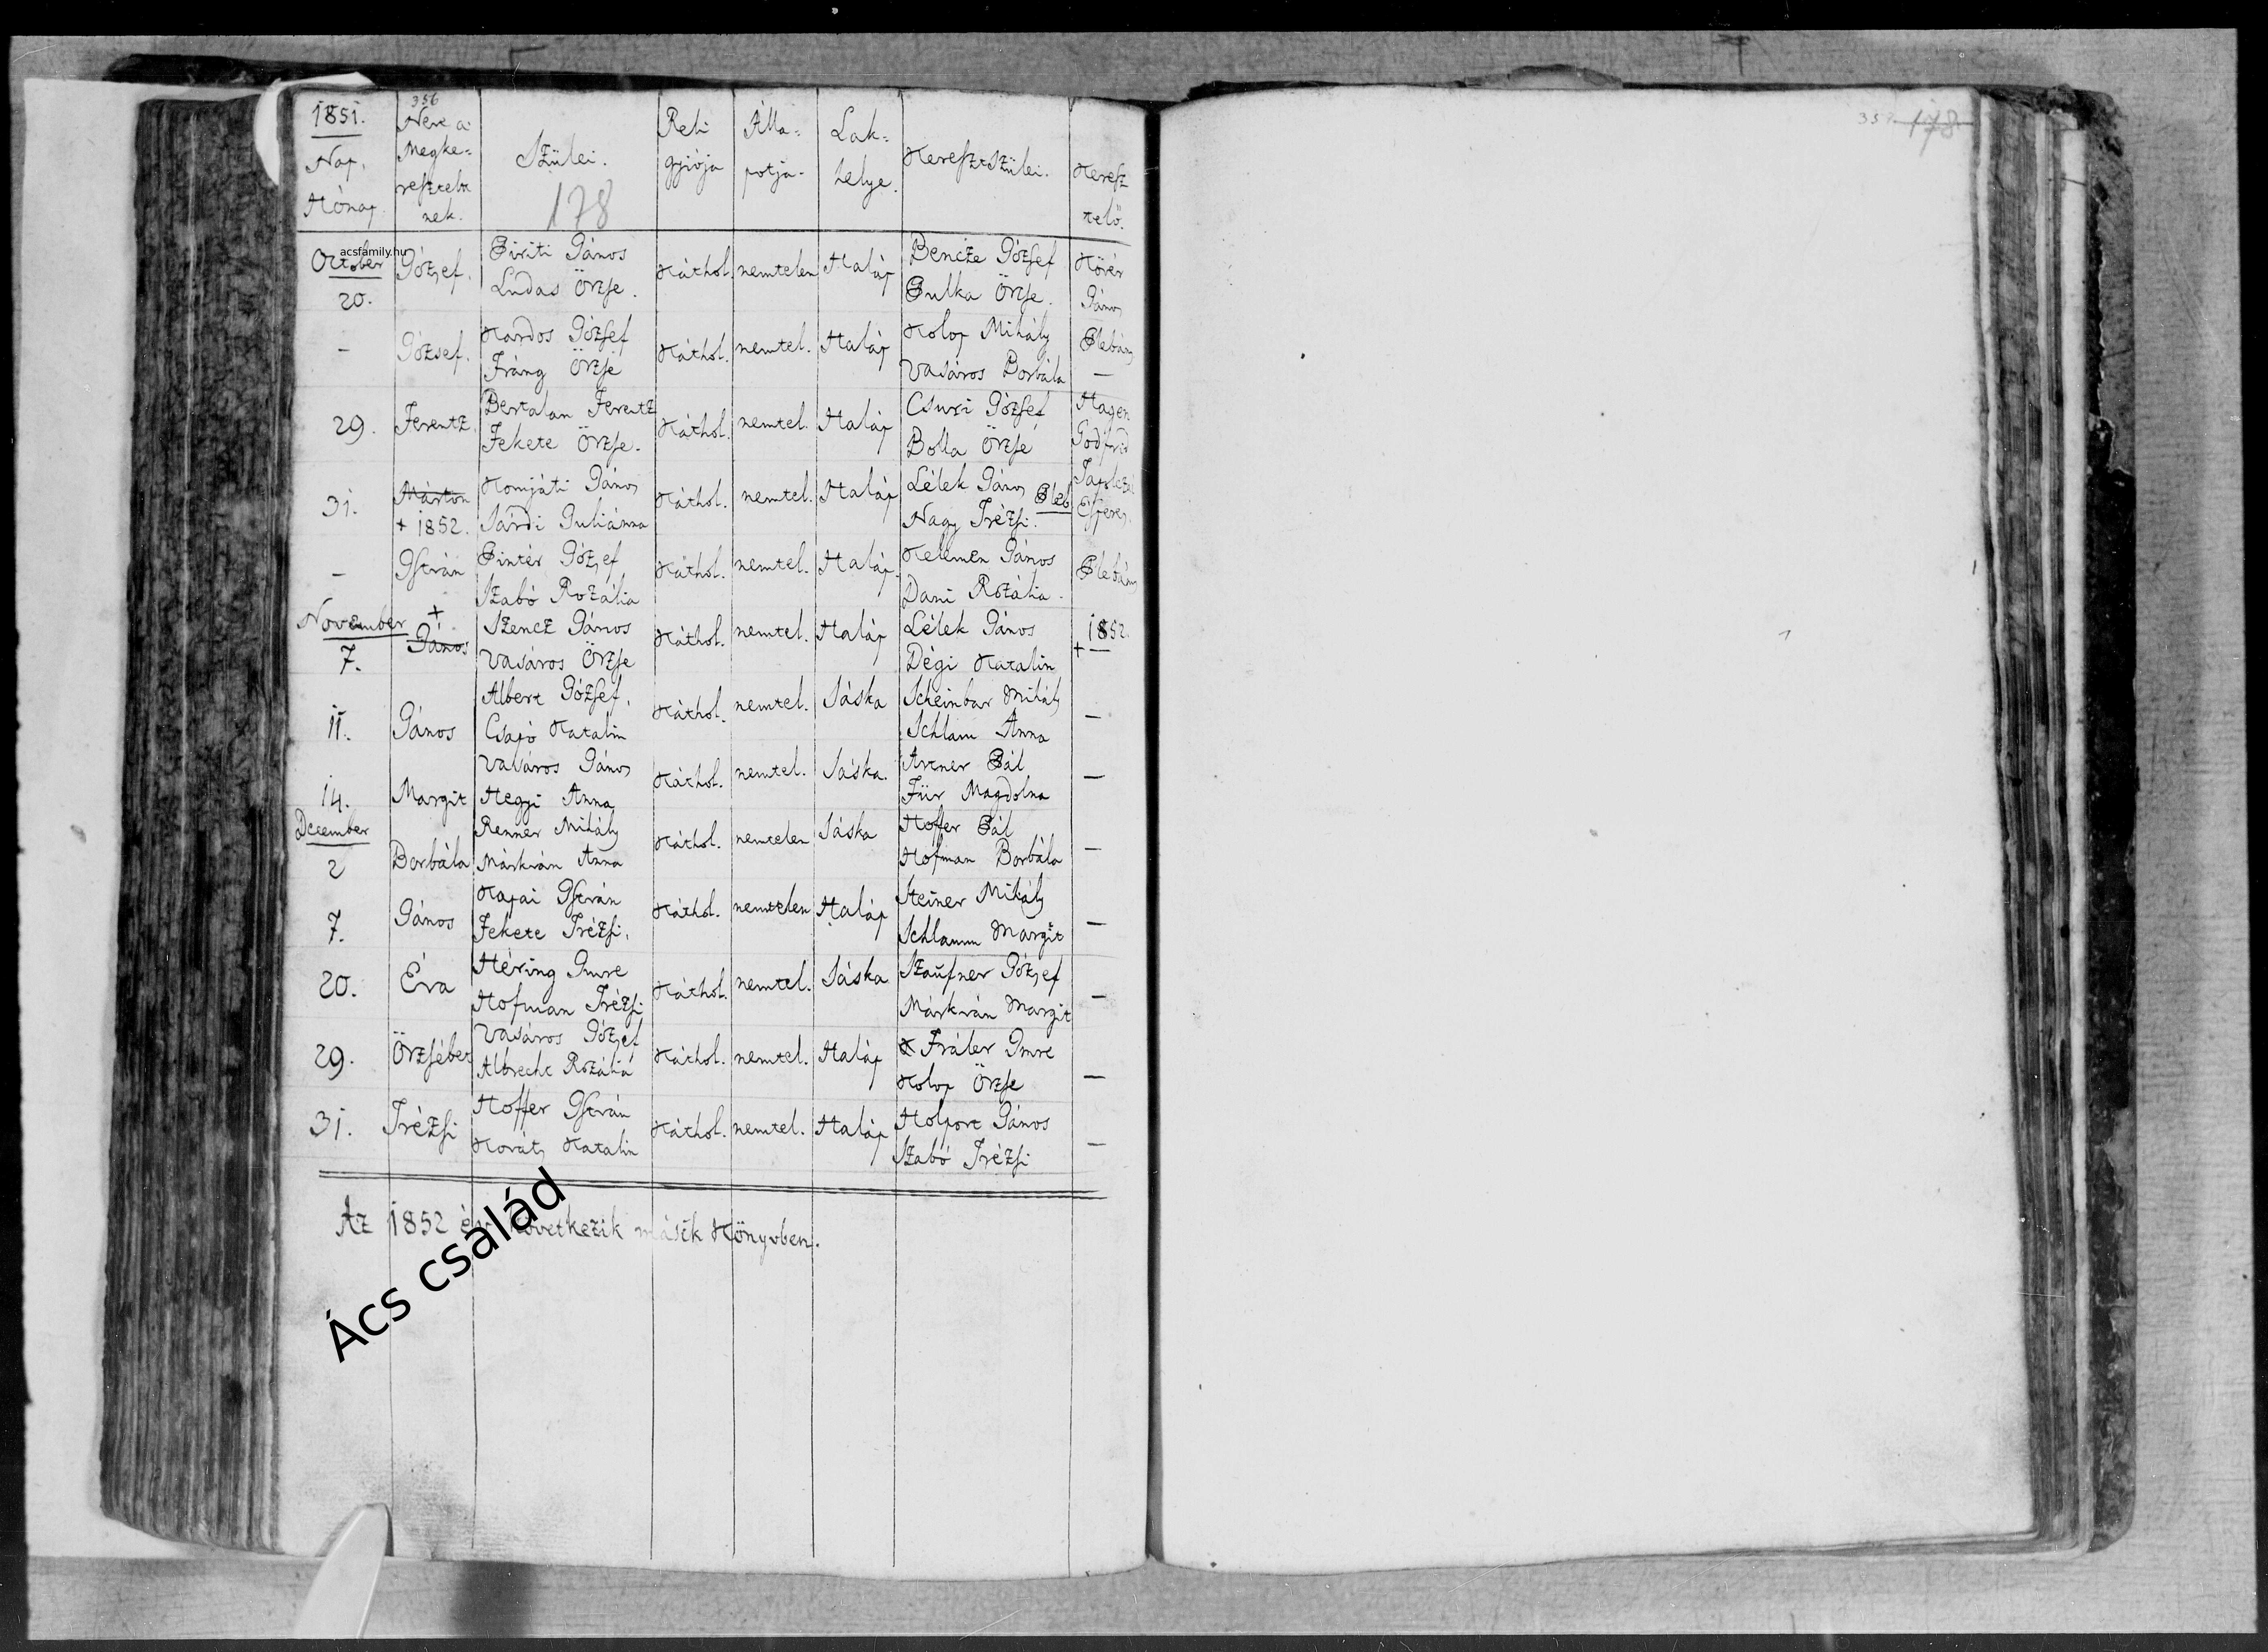 1851.
Nap,
Hónap.
356
Neve a
Megke=
resztelt
nek.
Szülei.
178
Reli
gyiója
Álla=
potja-
Lak=
helye.
Keresztszülei.
Keresz
telö.
acsfamily.hu
October
20.
József.
Piriti János
Ludas Örzse.
Káthol.
nemtelen
Haláp
Bencze József
Pulka Örzse.
Kövér
János
–
József.
Kardos József
Fráng Örzse
Káthol.
nemtel.
Haláp
Kolop Mihály
Vasáros Borbála
Plebán
—
29.
Ferentz.
Bertalan Ferentz
Fekete Örzse.
Káthol.
nemtel.
Haláp
Csuri József
Bolla Örzse
Hagen
Godfrid
31.
Márton
+ 1852.
Komjáti János
Sárdi Juliánna
Káthol.
nemtel.
Haláp
Lélek János
Nagy Trézsi.
Pleb
Tapolczai
Esperes.
–
István
Pintér József
Szabó Rozália
Káthol.
nemtel.
Haláp.
Kelemen János
Dani Rozália.
Plebán
November
7.
+
János
Szencz János
Vasáros Örzse
Káthol.
nemtel.
Haláp
Lélek János
Dégi Katalin
1852.
+ —
11.
János
Albert József.
Csapó Katalin
Káthol.
nemtel.
Sáska
Scheinbar Mihály
Schlam Anna
—
14.
Margit
Vasáros János
Hegyi Anna
Káthol.
nemtel.
Sáska.
Artner Pál
Für Magdolna
—
December
2
Borbála
Renner Mihály
Márkván Anna
Káthol.
nemtelen
Sáska
Hoffer Pál
Hofman Borbála
—
7.
János
Kapai István
Fekete Trézsi.
Káthol.
nemtelen
Haláp
Steiner Mihály
Schlamm Margit
—
20.
Éva
Héring Imre
Hofman Trézsi
Káthol.
nemtel.
Sáska
Szaufner József
Márkván Margit
—
29.
Örzsébet
Vasáros József
Albrecht Rozália
Káthol.
nemtel.
Haláp
Fráler Imre
Kolop Örzse
—
31.
Trézsi
Hoffer István
Kováts Katalin
Káthol.
nemtel.
Haláp
Holport János
Szabó Trézsi
—
Az 1852 év következik másik Könyvben.
Ács család
178